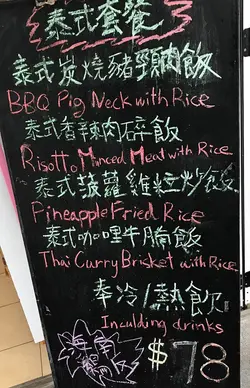 泰式套餐
泰式炭燒豬頸肉飯
BBQ Pig Neck with Rice
泰式香辣肉碎飯
Risotto Minced Meat with Rice
泰式菠蘿雞粒炒飯
Pineapple Fried Rice
泰式咖喱牛腩飯
Thai Curry Brisket with Rice
奉冷/熱飲
Inculding drinks
$78